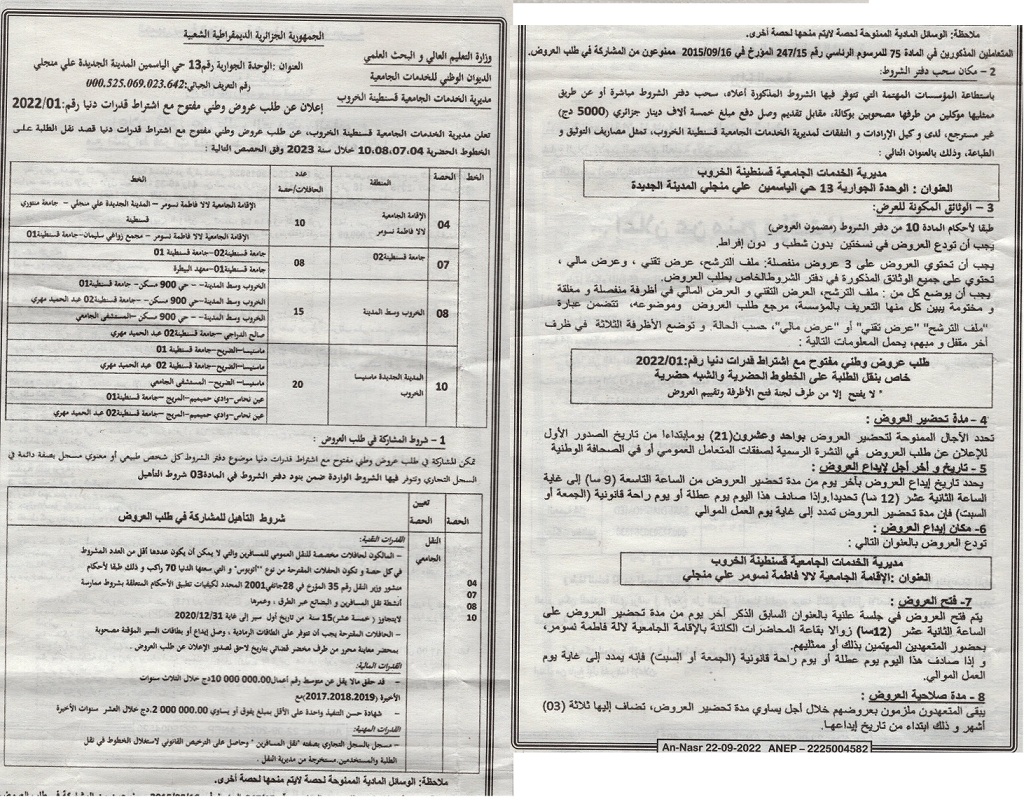 الجمهورية الجزائرية الديمقراطية الشعبية
وزارة التعليم العالي و البحث العلمي
الديوان الوطني للخدمات الجامعية
مديرية الخدمات الجامعية قسنطينة الخروب
العنوان :الوحدة الجوارية رقم13 حي الياسمين المدينة الجديدة علي منجلي
رقم التعريف الجبائي:000.525.069.023.642
إعلان عن طلب عروض وطني مفتوح مع اشتراط قدرات دنيا رقم:2022/01
تعلن مديرية الخدمات الجامعية قسنطينة الخروب، عن طلب عروض وطني مفتوح مع اشتراط قدرات دنيا قصد نقل الطلبة على
الخطوط الحضرية 10،08،07،04 خلال سنة 2023 وفق الحصص التالية :
الخط الحصة المنطقة عدد الحافلات/حصة الخط
04 الإقامة الجامعية لالا فاطمة نسومر 10
الإقامة الجامعية لالا فاطمة نسومر – المدينة الجديدة علي منجلي – جامعة منتوري
قسنطينة
الإقامة الجامعية لالا فاطمة نسومر – مجمع زواغي سليمان-جامعة قسنطينة01
07 جامعة قسنطينة02 08
جامعة قسنطينة02-جامعة قسنطينة 01
جامعة قسنطينة01-معهد البيطرة
08 الخروب وسط المدينة 15
الخروب وسط المدينة-– حي 900 مسكن- جامعة قسنطينة01
الخروب وسط المدينة-– حي 900 مسكن- –جامعة قسنطينة02 عبد الحميد مهري
الخروب وسط المدينة-– حي 900 مسكن – –المستشفى الجامعي
صالح الدراجي –جامعة قسنطينة02 عبد الحميد مهري
10 المدينة الجديدة ماسنيسا الخروب 20
ماسنيسا-الضريح-جامعة قسنطينة 01
ماسنيسا-الضريح-جامعة قسنطينة 02 عبد الحميد مهري
ماسنيسا-الضريح- المستشفى الجامعي
عين نحاس-وادي حميميم-المريج –جامعة قسنطينة01
عين نحاس-وادي حميميم-المريج –جامعة قسنطينة02 عبد الحميد مهري
1 – شروط المشاركة في طلب العروض :
تمكن المشاركة في طلب عروض وطني مفتوح مع اشتراط قدرات دنيا موضوع دفتر الشروط كل شخص طبيعي أو معنوي مسجل بصفة دائمة في
السجل التجاري وتتوفر فيها الشروط الواردة ضمن بنود دفتر الشروط في المادة03 شروط التأهيل
الحصة تعيين الحصة شروط التأهيل للمشاركة في طلب العروض
04
07
08
10
النقل
الجامعي
القدرات التقنية:
– المالكون لحافلات مخصصة للنقل العمومي للمسافرين والتي لا يمكن أن يكون عددها أقل من العدد المشروط
في كل حصة و تكون الحفلات المقترحة من نوع "أتوبيس" و التي سعتها الدنيا 70 راكب و ذلك طبقا لأحكام
منشور وزير النقل رقم 35 المؤرخ في 28جانفي2001 المحدد لكيفيات تطبيق الأحكام المتعلقة بشروط ممارسة
أنشطة نقل المسافرين و البضائع عبر الطرق ، وعمرها
لايتجاوز ( خمسة عشر)15 سنة من تاريخ أول سير إلى غاية 2020/12/31
– الحافلات المقترحة يجب أن تتوفر على الطاقات الرمادية ، وصل إيداع أو بطاقات السير المؤقتة مصحوبة
بمحضر معاينة محرر من طرف محضر قضائي بتاريخ لاحق لصدور الإعلان عن طلب العروض .
القدرات المالية:
– قد حقق مالا يقل عن متوسط رقم أعمال10 000 000.00دج خلال الثلاث سنوات
الأخيرة (2017.2018.2019)مع
– شهادة حسن التنفيذ واحدة على الأقل بمبلغ يفوق أو يساوي 2 000 000.00.دج خلال العشر سنوات الأخيرة
القدرات المهنية:
– مسجل بالسجل التجاري بصفته "نقل المسافرين" وحاصل على الترخيص القانوني لاستغلال الخطوط في نقل
الطلبة والمستخدمين.مستخرجة من مديرية النقل .
ملاحظة: الوسائل المادية الممنوحة لحصة لايتم منحها لحصة أخرى.
ملاحظة: الوسائل المادية الممنوحة لحصة لايتم منحها لحصة أخرى.
المتعاملين المذكورين في المادة 75 للمرسوم الرئاسي رقم 247/15 المؤرخ في 2015/09/16 ممنوعون من المشاركة في طلب العروض.
2 – مكان سحب دفتر الشروط:
باستطاعة المؤسسات المهتمة التي تتوفر فيها الشروط المذكورة أعلاه، سحب دفتر الشروط مباشرة أو عن طريق
ممثليها موكلين من طرفها مصحوبين بوكالة، مقابل تقديم وصل دفع مبلغ خمسة ألاف دينار جزائري (5000 دج)
غير مسترجع، لدى وكيل الإرادات و النفقات لمديرية الخدمات الجامعية قسنطينة الخروب، تمثل مصاريف التوثيق و
الطباعة، وذلك بالعنوان التالي :
مديرية الخدمات الجامعية قسنطينة الخروب
العنوان : الوحدة الجوارية 13 حي الياسمين علي منجلي المدينة الجديدة
3 – الوثائق المكونة للعرض:
طبقا لأحكام المادة 10 من دفتر الشروط (مضمون العروض)
يجب أن تودع العروض في نسختين بدون شطب و دون إفراط.
يجب أن تحتوي العروض على 3 عروض منفصلة: ملف الترشح، عرض تقني ، وعرض مالي ،
تحتوي على جميع الوثائق المذكورة في دفتر الشروط الخاص بطلب العروض.
يجب أن يوضع كل من : ملف الترشح، العرض التقني و العرض المالي في أظرفة منفصلة و مغلقة
و مختومة يبين كل منها التعريف بالمؤسسة، مرجع طلب العروض وموضوعه، تتضمن عبارة
"ملف الترشح" "عرض تقني" أو "عرض مالي"، حسب الحالة و توضع الأظرفة الثلاثة في ظرف
أخر مقفل و مبهم، يحمل المعلومات التالية :
طلب عروض وطني مفتوح مع اشتراط قدرات دنيا رقم:2022/01
خاص بنقل الطلبة على الخطوط الحضرية والشبه حضرية
" لا يفتح إلا من طرف لجنة فتح الأظرفة وتقييم العروض
4 – مدة تحضير العروض :
تحدد الأجال الممنوحة لتحضير العروض بواحد وعشرون(21) يومابتداءا من تاريخ الصدور الأول
للإعلان عن طلب العروض في النشرة الرسمية لصفقات المتعامل العمومي أو في الصحافة الوطنية
5 – تاريخ و أخر أجل لإيداع العروض :
يحدد تاريخ إيداع العروض بأخر يوم من مدة تحضير العروض من الساعة التاسعة (9 سا) إلى غاية
الساعة الثانية عشر (12 سا) تحديدا.وإذا صادف هذا اليوم يوم عطلة أو يوم راحة قانونية (الجمعة أو
السبت) فإن مدة تحضير العروض تمتد إلى غاية يوم العمل الموالي
6- مكان إيداع العروض :
تودع العروض بالعنوان التالي :
مديرية الخدمات الجامعية قسنطينة الخروب
العنوان :الإقامة الجامعية لالا فاطمة نسومر علي منجلي
7- فتح العروض :
يتم فتح العروض في جلسة علنية بالعنوان السابق الذكر أخر يوم من مدة تحضير العروض على
الساعة الثانية عشر (12سا) زوالا بقاعة المحاضرات الكائنة بالإقامة الجامعية لالة فاطمة نسومر،
بحضور المتعهدين المهتمين بذلك أو ممثليهم.
و إذا صادف هذا اليوم يوم عطلة أو يوم راحة قانونية (الجمعة أو السبت) فإنه يمدد إلى غاية يوم
العمل الموالي.
8 – مدة صلاحية العروض :
يبقى المتعهدون ملزمون بعروضهم خلال أجل يساوي مدة تحضير العروض، تضاف إليها ثلاثة (03)
أشهر و ذلك ابتداء من تاريخ إيداعها.
An-Nasr 22-09-2022 ANEP – 2225004582